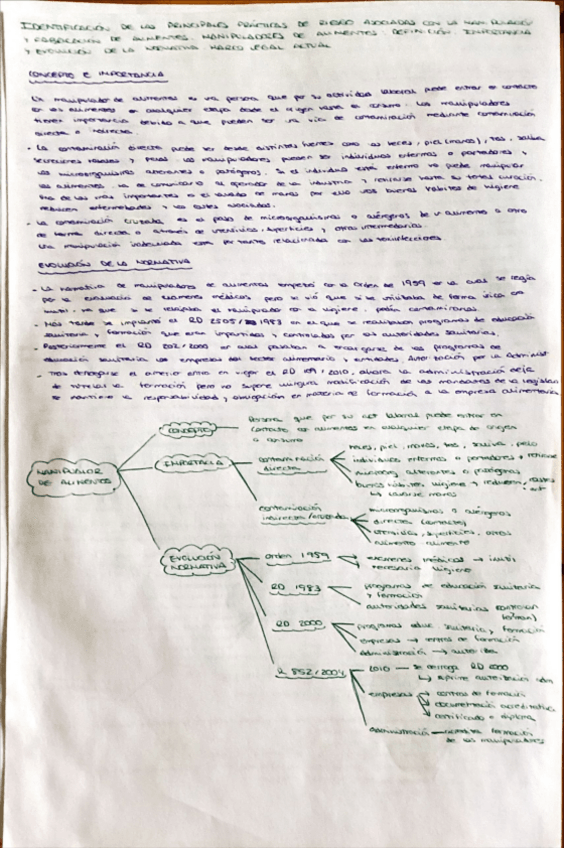 IDENTIFICACIÓN DE LAS PRINCIPALES PRÁCTICAS DE RIESGO ASOCIADAS CON LA MANIPULACIÓN
Y FABRICACIÓN DE ALIMENTOS. MANIPULADORES DE ALIMENTOS: DEFINICIÓN. IMPORTANCIA
Y EVOLUCIÓN DE LA NORMATIVA. MARCO LEGAL ACTUAL
CONCEPTO E IMPORTANCIA
Un manipulador de alimentos es una persona que por su actividad laboral puede entrar en contacto
con los alimentos en cualquier etapa desde el origen hasta el consumo. Los manipuladores
tienen importancia debido a que pueden ser una vía de contaminación mediante contaminación
directa o indirecta.
- La contaminación directa puede ser desde distintas fuentes como las heces, piel (manos), tos, saliva,
secreciones nasales y pelos. Los manipuladores pueden ser individuos enfermos o portadores y
los microorganismos alterantes o patógenos. Si el individuo está enfermo no puede manipular
los alimentos, ha de comunicarlo al operador de la industria y retirarse hasta su total curación.
Una de las más importantes es el lavado de manos por ello unos buenos hábitos de higiene
reducen enfermedades y los costes asociados.
- La contaminación cruzada es el paso de microorganismos o alérgenos de un alimento a otro
de forma directa o a través de utensilios, superficies y otros intermediarios.
Una manipulación inadecuada está por tanto relacionada con las toxiinfecciones.
EVOLUCIÓN DE LA NORMATIVA
- La normativa de manipuladores de alimentos empezó con la orden de 1959 en la cual se regía
por la evaluación de exámenes médicos pero se vió que si se utilizaba de forma única era
inútil ya que si se relajaba el manipulador con la higiene, podía contaminarlos
- Más tarde se implantó el RD 2505/1983 en el que se realizaban programas de educación
sanitaria y formación que eran impartidos y controlados por las autoridades sanitarias.
- Posteriormente el RD 202/2000 en el cual pasaban a encargarse de los programas de
educación sanitaria las empresas del sector alimentario y entidades. Autorización por la Administ
- Tras derogarse el anterior entra en vigor el RD 109/2010, ahora la administración deja
de tutelar la formación pero no supone ninguna modificación de los mandatos de la legislación
Se mantiene la responsabilidad y obligación en materia de formación a la empresa alimentaria
MANIPULADOR
DE ALIMENTOS
CONCEPTO
Persona que por su act laboral puede entrar en
contacto con alimentos en cualquier etapa de origen
a consumo
IMPORTANCIA
contaminación
directa
heces, piel, manos, tos, saliva, pelo
individuos enfermos o portadores → retirarse
alterantes o patógenos
buenos hábitos higiene → reducen costes
lavarse manos
contaminación
microorganismos o alérgenos
directos (contacto)
utensilios, superficies, otros
alimento
EVOLUCIÓN
NORMATIVA
orden 1959
exámenes médicos → inútil
necesaria higiene
RD 1983
programas de educación sanitaria
y formación
autoridades sanitarias controlan
RD 2000
programas educ. sanitaria y formación
empresas → centros de formación
Administración → autoriza
R 852/2004
2010 — se deroga RD 2000
↳ suprime autorización adm
empresas
centros de formación
documentación acreditativa
certificado o diploma
administración — acredita formación
de los manipuladores